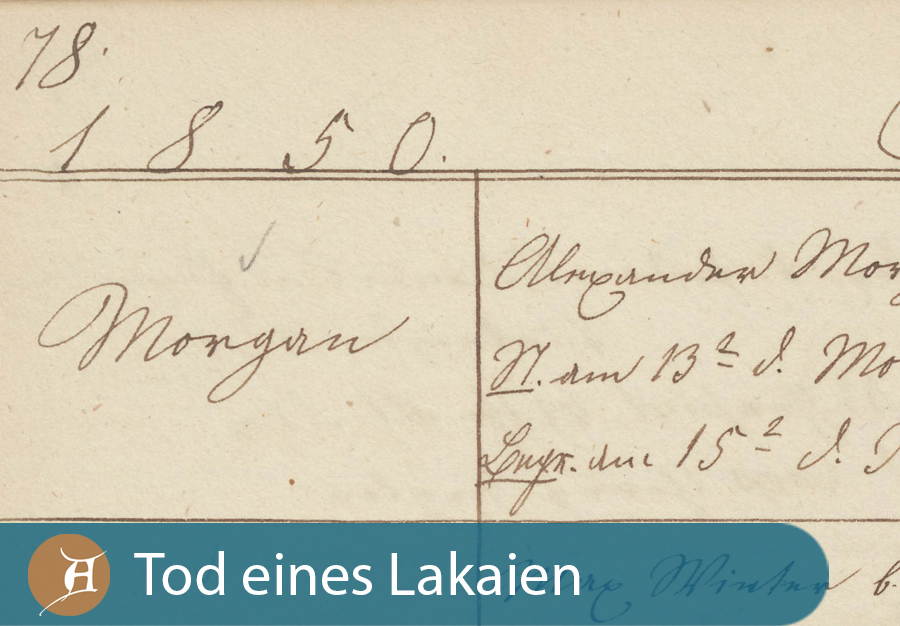 78.
1850.
Morgan
Alexander Mor
St. am 13ᵗ d. Mo
Begr. am 15ᵗ d.
Max Winter b.
A Tod eines Lakaien